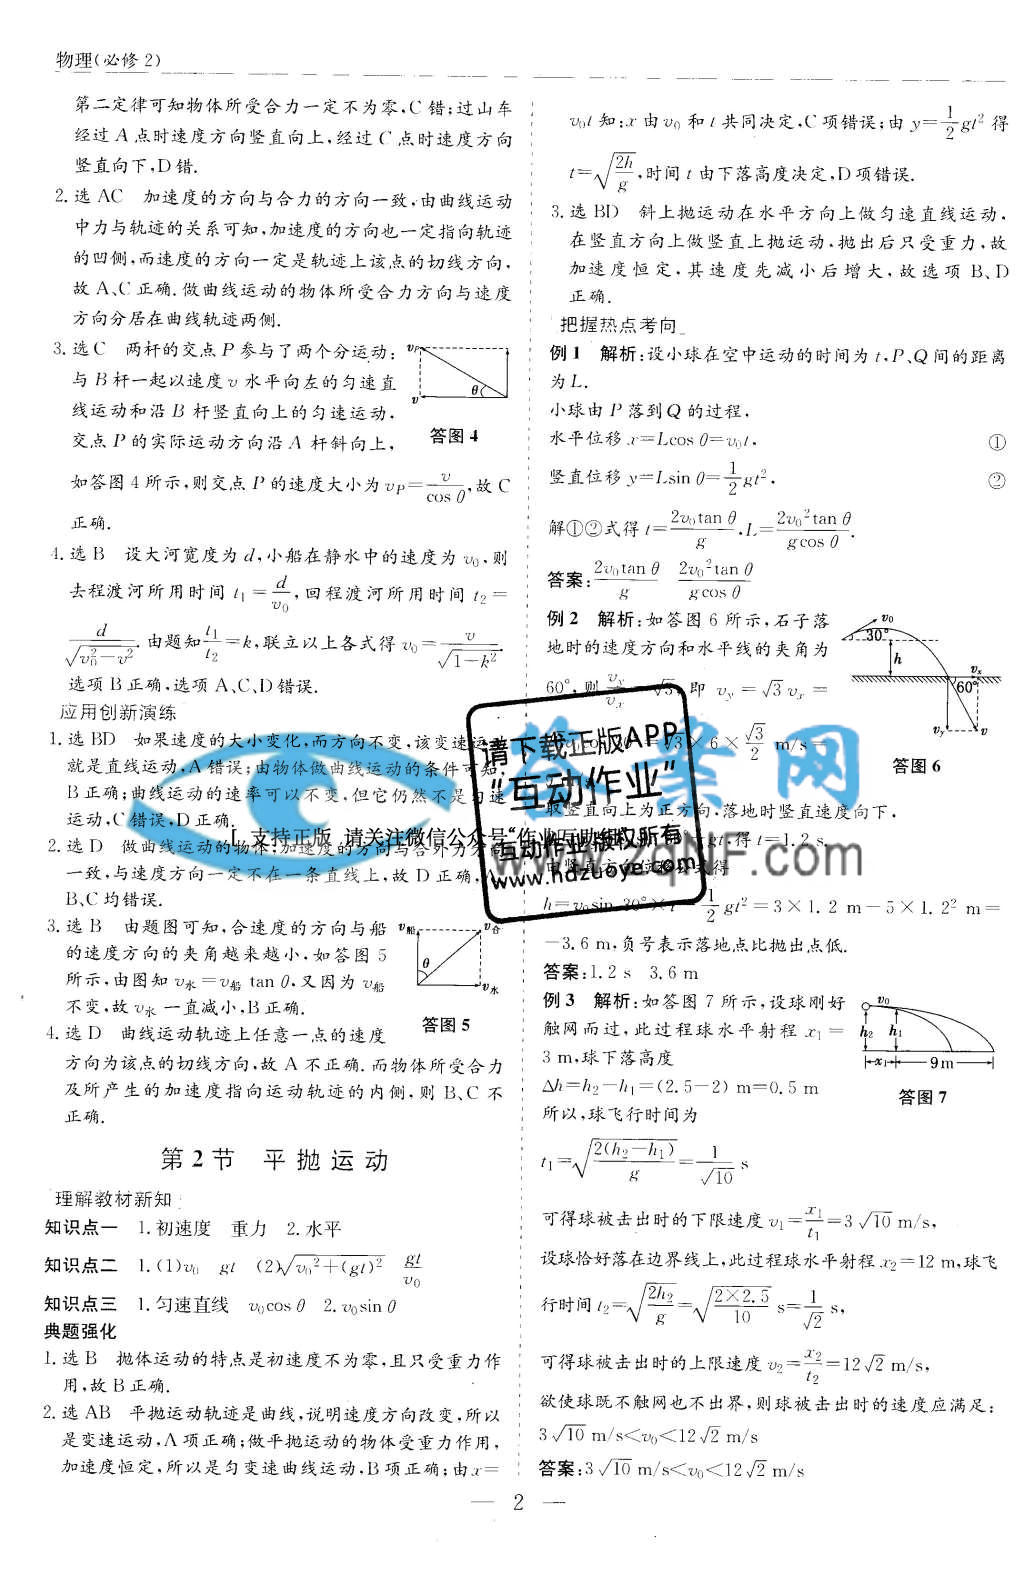 物理(必修 2)
第二定律可知物体所受合力一定不为零,C 错;过山车
经过 A 点时速度方向竖直向上,经过 C 点时速度方向
竖直向下,D 错.
2. 选 AC 加速度的方向与合力的方向一致,由曲线运动
中力与轨迹的关系可知,加速度的方向也一定指向轨迹
的凹侧,而速度的方向一定是轨迹上该点的切线方向,
故 A、C 正确.做曲线运动的物体所受合力方向与速度
方向分居在曲线轨迹两侧.
3. 选 C 两杆的交点 P 参与了两个分运动:
与 B 杆一起以速度 v 水平向左的匀速直
线运动和沿 B 杆竖直向上的匀速运动,
交点 P 的实际运动方向沿 A 杆斜向上,
vP θ v
答图 4
如答图 4 所示,则交点 P 的速度大小为 vP=v/cos θ,故 C
正确.
4. 选 B 设大河宽度为 d,小船在静水中的速度为 v0,则
去程渡河所用时间 t1=d/v0,回程渡河所用时间 t2=
d/√(v0²−v²).由题知 t1/t2=k,联立以上各式得 v0=v/√(1−k²).
选项 B 正确,选项 A、C、D 错误.
应用创新演练
1. 选 BD 如果速度的大小变化,而方向不变,该变速运动
就是直线运动,A 错误;由物体做曲线运动的条件可知,
B 正确;曲线运动的速率可以不变,但它仍然不是匀速
运动,C 错误,D 正确.
2. 选 D 做曲线运动的物体,加速度的方向与合外力方向
一致,与速度方向一定不在一条直线上,故 D 正确,A、
B、C 均错误.
3. 选 B 由题图可知,合速度的方向与船
的速度方向的夹角越来越小,如答图 5
所示,由图知 v水=v船 tan θ,又因为 v船
不变,故 v水 一直减小,B 正确.
v船 v合 θ v水
答图 5
4. 选 D 曲线运动轨迹上任意一点的速度
方向为该点的切线方向,故 A 不正确.而物体所受合力
及所产生的加速度指向运动轨迹的内侧,则 B、C 不
正确.
第 2 节 平抛运动
理解教材新知
知识点一 1. 初速度 重力 2. 水平
知识点二 1. (1)v0 gt (2)√(v0²+(gt)²) gt/v0
知识点三 1. 匀速直线 v0cos θ 2. v0sin θ
典题强化
1. 选 B 抛体运动的特点是初速度不为零,且只受重力作
用,故 B 正确.
2. 选 AB 平抛运动轨迹是曲线,说明速度方向改变,所以
是变速运动,A 项正确;做平抛运动的物体受重力作用,
加速度恒定,所以是匀变速曲线运动,B 项正确;由 x=
v0t 知:x 由 v0 和 t 共同决定,C 项错误;由 y=1/2 gt² 得
t=√(2h/g),时间 t 由下落高度决定,D 项错误.
3. 选 BD 斜上抛运动在水平方向上做匀速直线运动,
在竖直方向上做竖直上抛运动,抛出后只受重力,故
加速度恒定,其速度先减小后增大,故选项 B、D
正确.
把握热点考向
例 1 解析:设小球在空中运动的时间为 t,P、Q 间的距离
为 L.
小球由 P 落到 Q 的过程,
水平位移 x=Lcos θ=v0t. ①
竖直位移 y=Lsin θ=1/2 gt². ②
解①②式得 t=2v0tan θ/g,L=2v0²tan θ/gcos θ.
答案:2v0tan θ/g 2v0²tan θ/gcos θ
例 2 解析:如答图 6 所示,石子落
地时的速度方向和水平线的夹角为
60°,则 vy/vx=√3,即 vy=√3vx=
v0 30° h vx 60° vy v
答图 6
=√3×6×√3/2 m/s=
取竖直向上为正方向,落地时竖直速度向下,
得 t=1.2 s.
h=v0sin 30°×t−1/2 gt²=3×1.2 m−5×1.2² m=
−3.6 m,负号表示落地点比抛出点低.
答案:1.2 s 3.6 m
例 3 解析:如答图 7 所示,设球刚好
触网而过,此过程球水平射程 x1=
3 m,球下落高度
v0 h2 h1 x1 9 m
答图 7
Δh=h2−h1=(2.5−2) m=0.5 m
所以,球飞行时间为
t1=√(2(h2−h1)/g)=1/√10 s
可得球被击出时的下限速度 v1=x1/t1=3√10 m/s,
设球恰好落在边界线上,此过程球水平射程 x2=12 m,球飞
行时间 t2=√(2h2/g)=√(2×2.5/10) s=1/√2 s,
可得球被击出时的上限速度 v2=x2/t2=12√2 m/s,
欲使球既不触网也不出界,则球被击出时的速度应满足:
3√10 m/s<v0<12√2 m/s
答案:3√10 m/s<v0<12√2 m/s
— 2 —
请下载正版APP
“互动作业”
互动作业版权所有
www.hdzuoye.com
支持正版 请关注微信公众号“作业
答案网